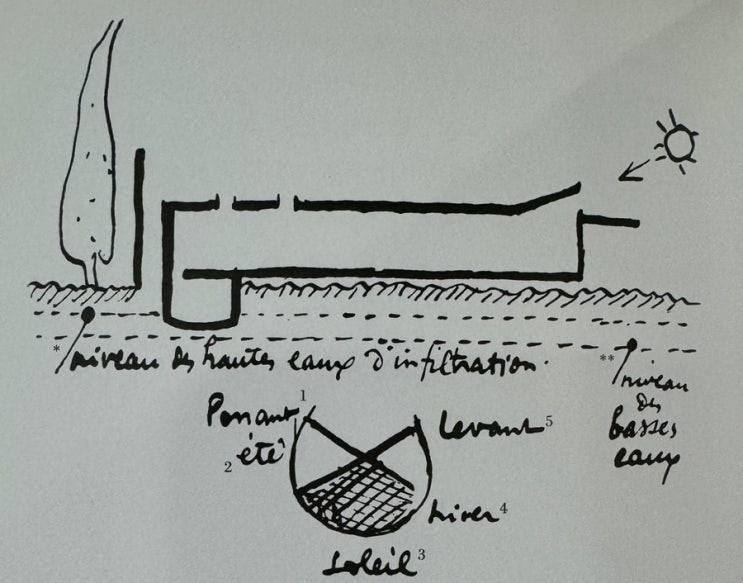 * niveau des hautes eaux d'infiltration.
** niveau
des
basses
eaux
Ponant 1
2 été
Levant 5
hiver 4
Soleil 3